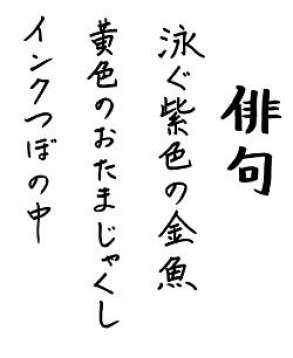 俳句
泳ぐ紫色の金魚
黄色のおたまじゃくし
インクつぼの中